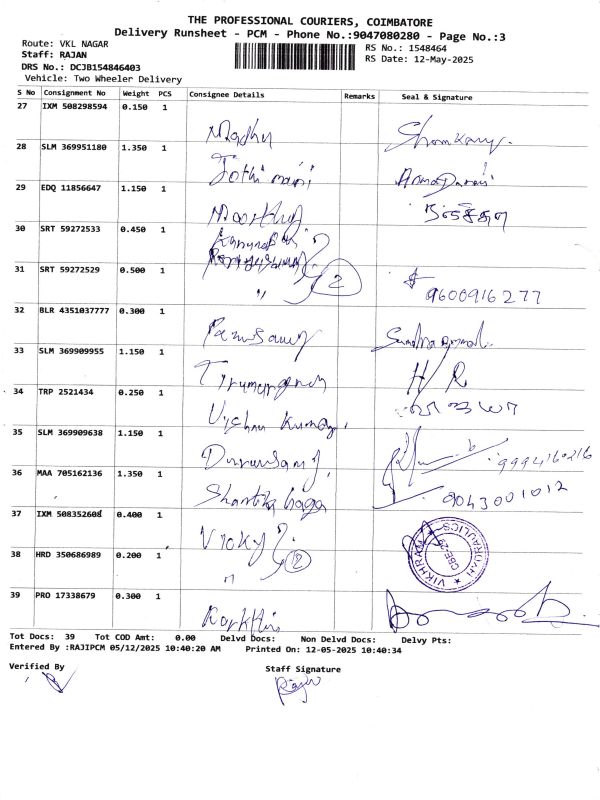 THE PROFESSIONAL COURIERS, COIMBATORE
Delivery Runsheet - PCM - Phone No.:9047080280 - Page No.:3
Route: VKL NAGAR
RS No.: 1548464
Staff: RAJAN
RS Date: 12-May-2025
DRS No.: DCJB154846403
Vehicle: Two Wheeler Delivery
S No Consignment No Weight PCS Consignee Details Remarks Seal & Signature
27 IXM 508298594 0.150 1
Madhu
28 SLM 369951180 1.350 1
Jothi mani
29 EDQ 11856647 1.150 1
Moorthy
30 SRT 59272533 0.450 1
31 SRT 59272529 0.500 1
" 2
9600916277
32 BLR 4351037777 0.300 1
Ramasamy
33 SLM 369909955 1.150 1
H/R
34 TRP 2521434 0.250 1
Vishnu Kumar
35 SLM 369909638 1.150 1
Duraisamy
9994160216
36 MAA 705162136 1.350 1
9043001012
37 IXM 508352608 0.400 1
Vicky
38 HRD 350686989 0.200 1
" 2
CBE-29
39 PRO 17338679 0.300 1
Karthi
Tot Docs: 39 Tot COD Amt: 0.00 Delvd Docs: Non Delvd Docs: Delvy Pts:
Entered By :RAJIPCM 05/12/2025 10:40:20 AM Printed On: 12-05-2025 10:40:34
Verified By
Staff Signature